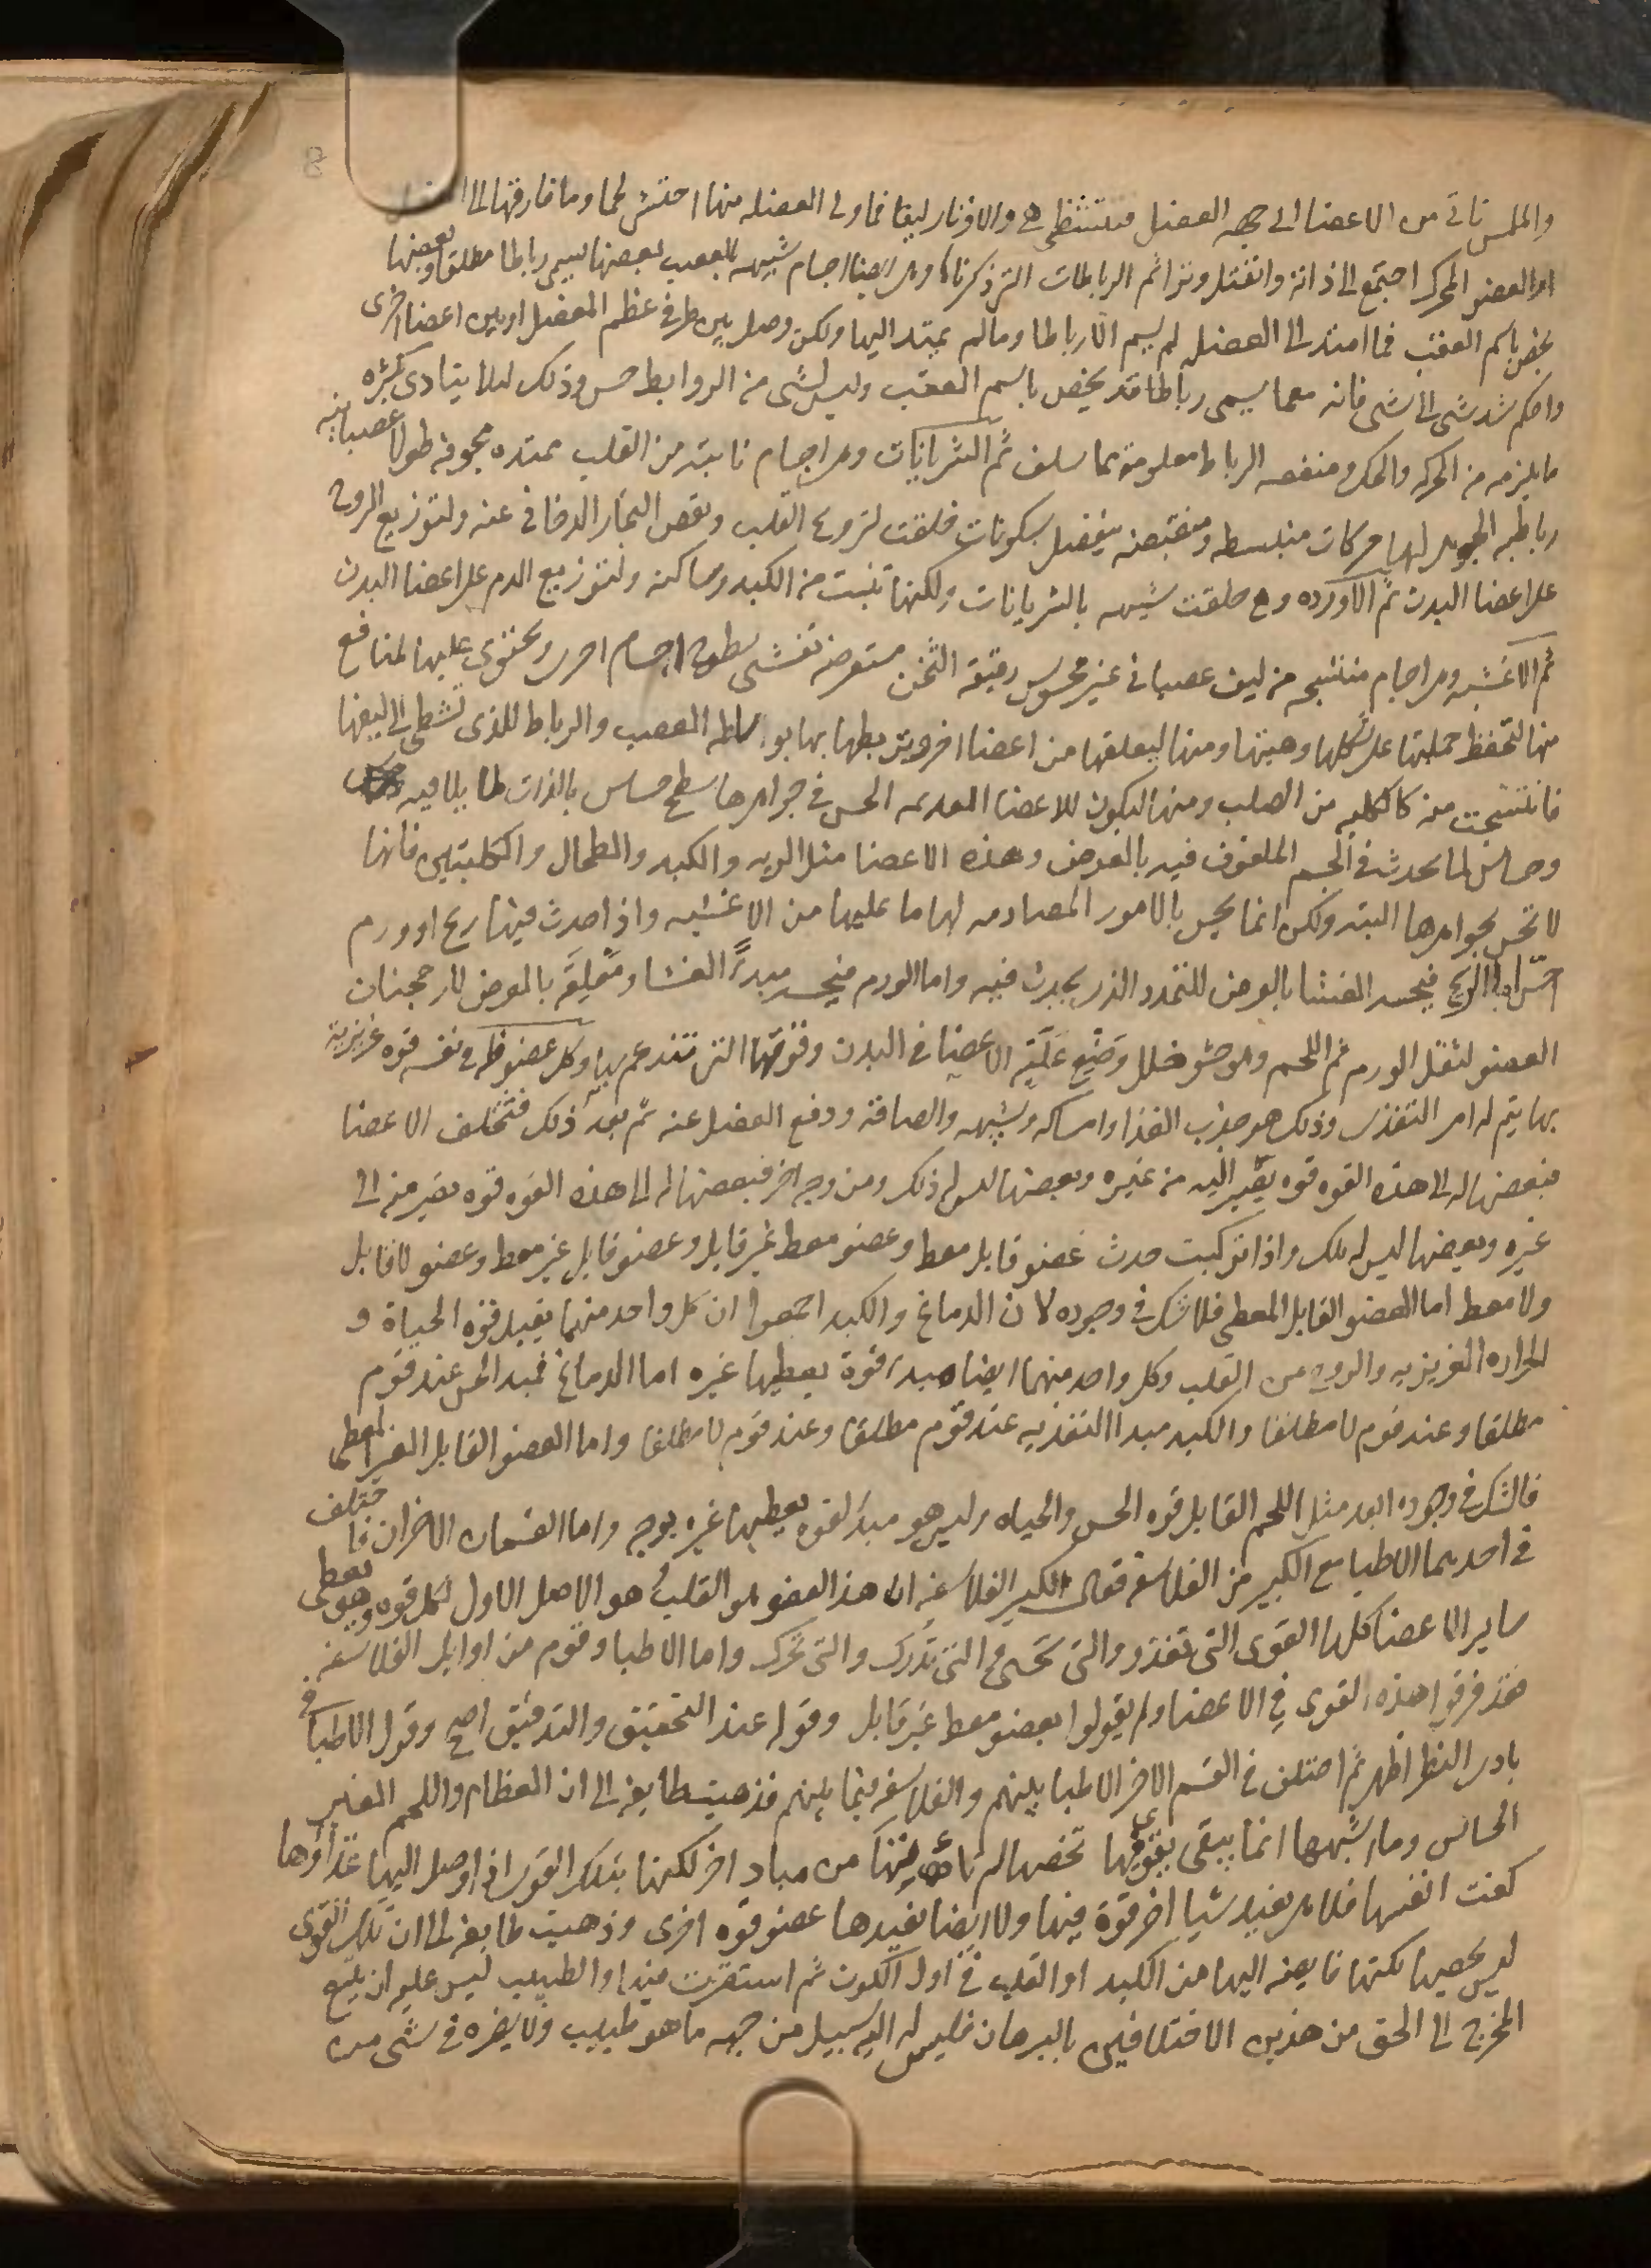 والملس تاتى من الاعضا الى جهه العضل فتتشظى هى والاوتار ليفا فما ولى العضله منها احتشى لحما وما فارقها الى
او العضو المحرك اجتمع الى ذاته وانفتل وترا ثم الرباطات التى ذكرناها وهى ايضا اجسام شبيهه بالعصب بعضها يسمى رباطا مطلقا وبعضها
يخص باسم العقب فما امتد الى العضله لم يسم الا رباطا وما لم يمتد اليها ولكن وصل بين طرفى عظم المفصل او بين اعضا اخرى
واحكم شد شى الى شى فانه مع ما يسمى رباطا قد يخص باسم العقب وليس لشى من الروابط حس وذلك ليلا يتادى بكثره
ما يلزمه من الحركه والحك ومنفعه الرباط معلومه مما سلف ثم الشريانات وهى اجسام نابته من القلب ممتده مجوفه طولا عصبانيه
رباطيه الجوهر لها حركات منبسطه ومنقبضه ينفصل بسكونات خلقت لترويح القلب ونفض البخار الدخانى عنه ولتوزيع الروح
على اعضا البدن ثم الاورده وهى خلقت شبيهه بالشريانات ولكنها تنبت من الكبد وساكنه ولتوزيع الدم على اعضا البدن
ثم الاغشيه وهى اجسام منتسجه من ليف عصبانى غير محسوس رقيقه الثخن مستعرضه تغشى سطوح اجسام اخر ويحتوى عليها لمنافع
منها لتحفظ جملتها على شكلها وهيتها ومنها ليعلقها من اعضا اخر ويربطها بها بواسطه العصب والرباط للذى تشظى الى ليفها
فانتسجت منه كالكليه من الصلب ومنها ليكون للاعضا العديمه الحس فى جواهرها سطح حساس بالذات لما يلاقيه
وحساس لما يحدث فى الجسم الملفوف فيه بالعرض وهذه الاعضا مثل الريه والكبد والطحال والكليتين فانها
لا تحس بجواهرها البته ولكن انما يحس بالامور المصادمه لها ما عليها من الاغشيه واذا حدث فيها ريح او ورم
احس اما الريح فيحسه الغشا بالعرض للتمدد الذى يحدث فيه واما الورم فيحسه مبدأ الغشا ومعلقه بالعرض لارجحنان
العضو لثقل الورم ثم اللحم وهو حشو خلل وضع هذه الاعضا فى البدن وقوتها التى تندعم بها وكل عضو فله فى نفسه قوه غريزيه
بها يتم له امر التغذى وذلك هو جذب الغذا وامساكه وتشبيهه والصاقه ودفع الفضل عنه ثم بعد ذلك فتختلف الاعضا
فبعضها له الى هذه القوه قوه يصير اليه من غيره وبعضها ليس له ذلك ومن وجه اخر فبعضها له الى هذه القوه قوه يصير منه الى
غيره وبعضها ليس له تلك واذا تركبت حدث عضو قابل معط وعضو معط غير قابل وعضو قابل غير معط وعضو لا قابل
ولا معط اما العضو القابل المعطى فلا شك فى وجوده لان الدماغ والكبد اجمعوا ان كل واحد منهما يقبل قوه الحياة و
الحراره الغريزيه والروح من القلب وكل واحد منهما ايضا مبدا قوة يعطيها غيره اما الدماغ فمبدا الحس عند قوم
مطلقا وعند قوم لا مطلقا والكبد مبدا التغذيه عند قوم مطلقا وعند قوم لا مطلقا واما العضو القابل الغير المعطى
فالشك فى وجوده ابعد مثل اللحم القابل قوه الحس والحياه وليس هو مبدأ لقوه يعطيها غيره بوجه واما القسمان الاخران فاختلف
فى احدهما الاطبا مع الكبير من الفلاسفه فقال الكبير الفلاسفه ان هذا العضو هو القلب هو الاصل الاول لكل قوه وهو يعطى
ساير الاعضا كلها القوى التى تغذو والتى تحيى والتى تدرك والتى تحرك واما الاطبا وقوم من اوايل الفلاسفه
فقد فرقوا هذه القوى فى الاعضا ولم يقولوا بعضو معط غير قابل وقوله عند التحقيق والتدقيق اصح وقول الاطبا فى
بادى النظر اظهر ثم اختلف فى القسم الاخر الاطبا بينهم والفلاسفه فيما بينهم فذهبت طايفه الى ان العظام واللحم الغير
الحساس وما اشبهها انما يبقى بقوى فيها تخصها لم تاتها من مباد اخر لكنها بتلك القوى اذا وصل اليها غذاؤها
كفت انفسها فلا هى يفيد شيا اخر قوة فيها ولا ايضا يفيدها عضو قوه اخرى وذهبت طايفه الى ان تلك القوى
ليس يخصها لكنها فايضه اليها من الكبد او القلب فى اول الكون ثم استقرت فيها والطبيب ليس عليه ان يتتبع
المخرج الى الحق من هذين الاختلافين بالبرهان فليس له اليه سبيل من جهه ما هو طبيب ولا يضره فى شى من